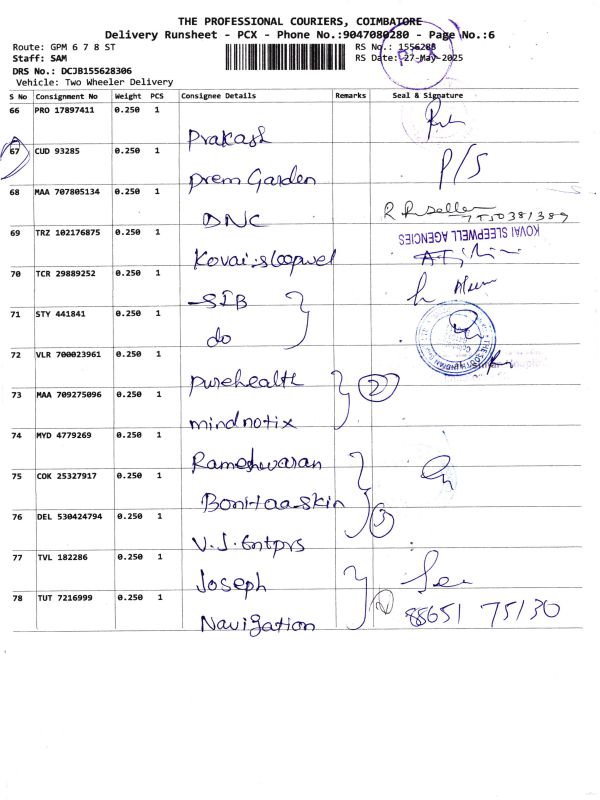 THE PROFESSIONAL COURIERS, COIMBATORE
Delivery Runsheet - PCX - Phone No.:9047080280 - Page No.:6
Route: GPM 6 7 8 ST RS No.: 1556283
Staff: SAM RS Date: 27-May-2025
DRS No.: DCJB155628306
Vehicle: Two Wheeler Delivery
S No Consignment No Weight PCS Consignee Details Remarks Seal & Signature
66 PRO 17897411 0.250 1
Prakash
67 CUD 93285 0.250 1 P/S
Prem Garden
68 MAA 707805134 0.250 1
DNC
69 TRZ 102176875 0.250 1 KOVAI SLEEPWELL AGENCIES
Kovai.sleepwel
70 TCR 29889252 0.250 1
SIB
71 STY 441841 0.250 1
do
72 VLR 700023961 0.250 1
Purehealth
73 MAA 709275096 0.250 1 2
mindnotix
74 MYD 4779269 0.250 1
Rameshwaran
75 COK 25327917 0.250 1
Bonitaaskin
76 DEL 530424794 0.250 1 3
V.J. Entprs
77 TVL 182286 0.250 1
Joseph
78 TUT 7216999 0.250 1 88651 75130
Navigation